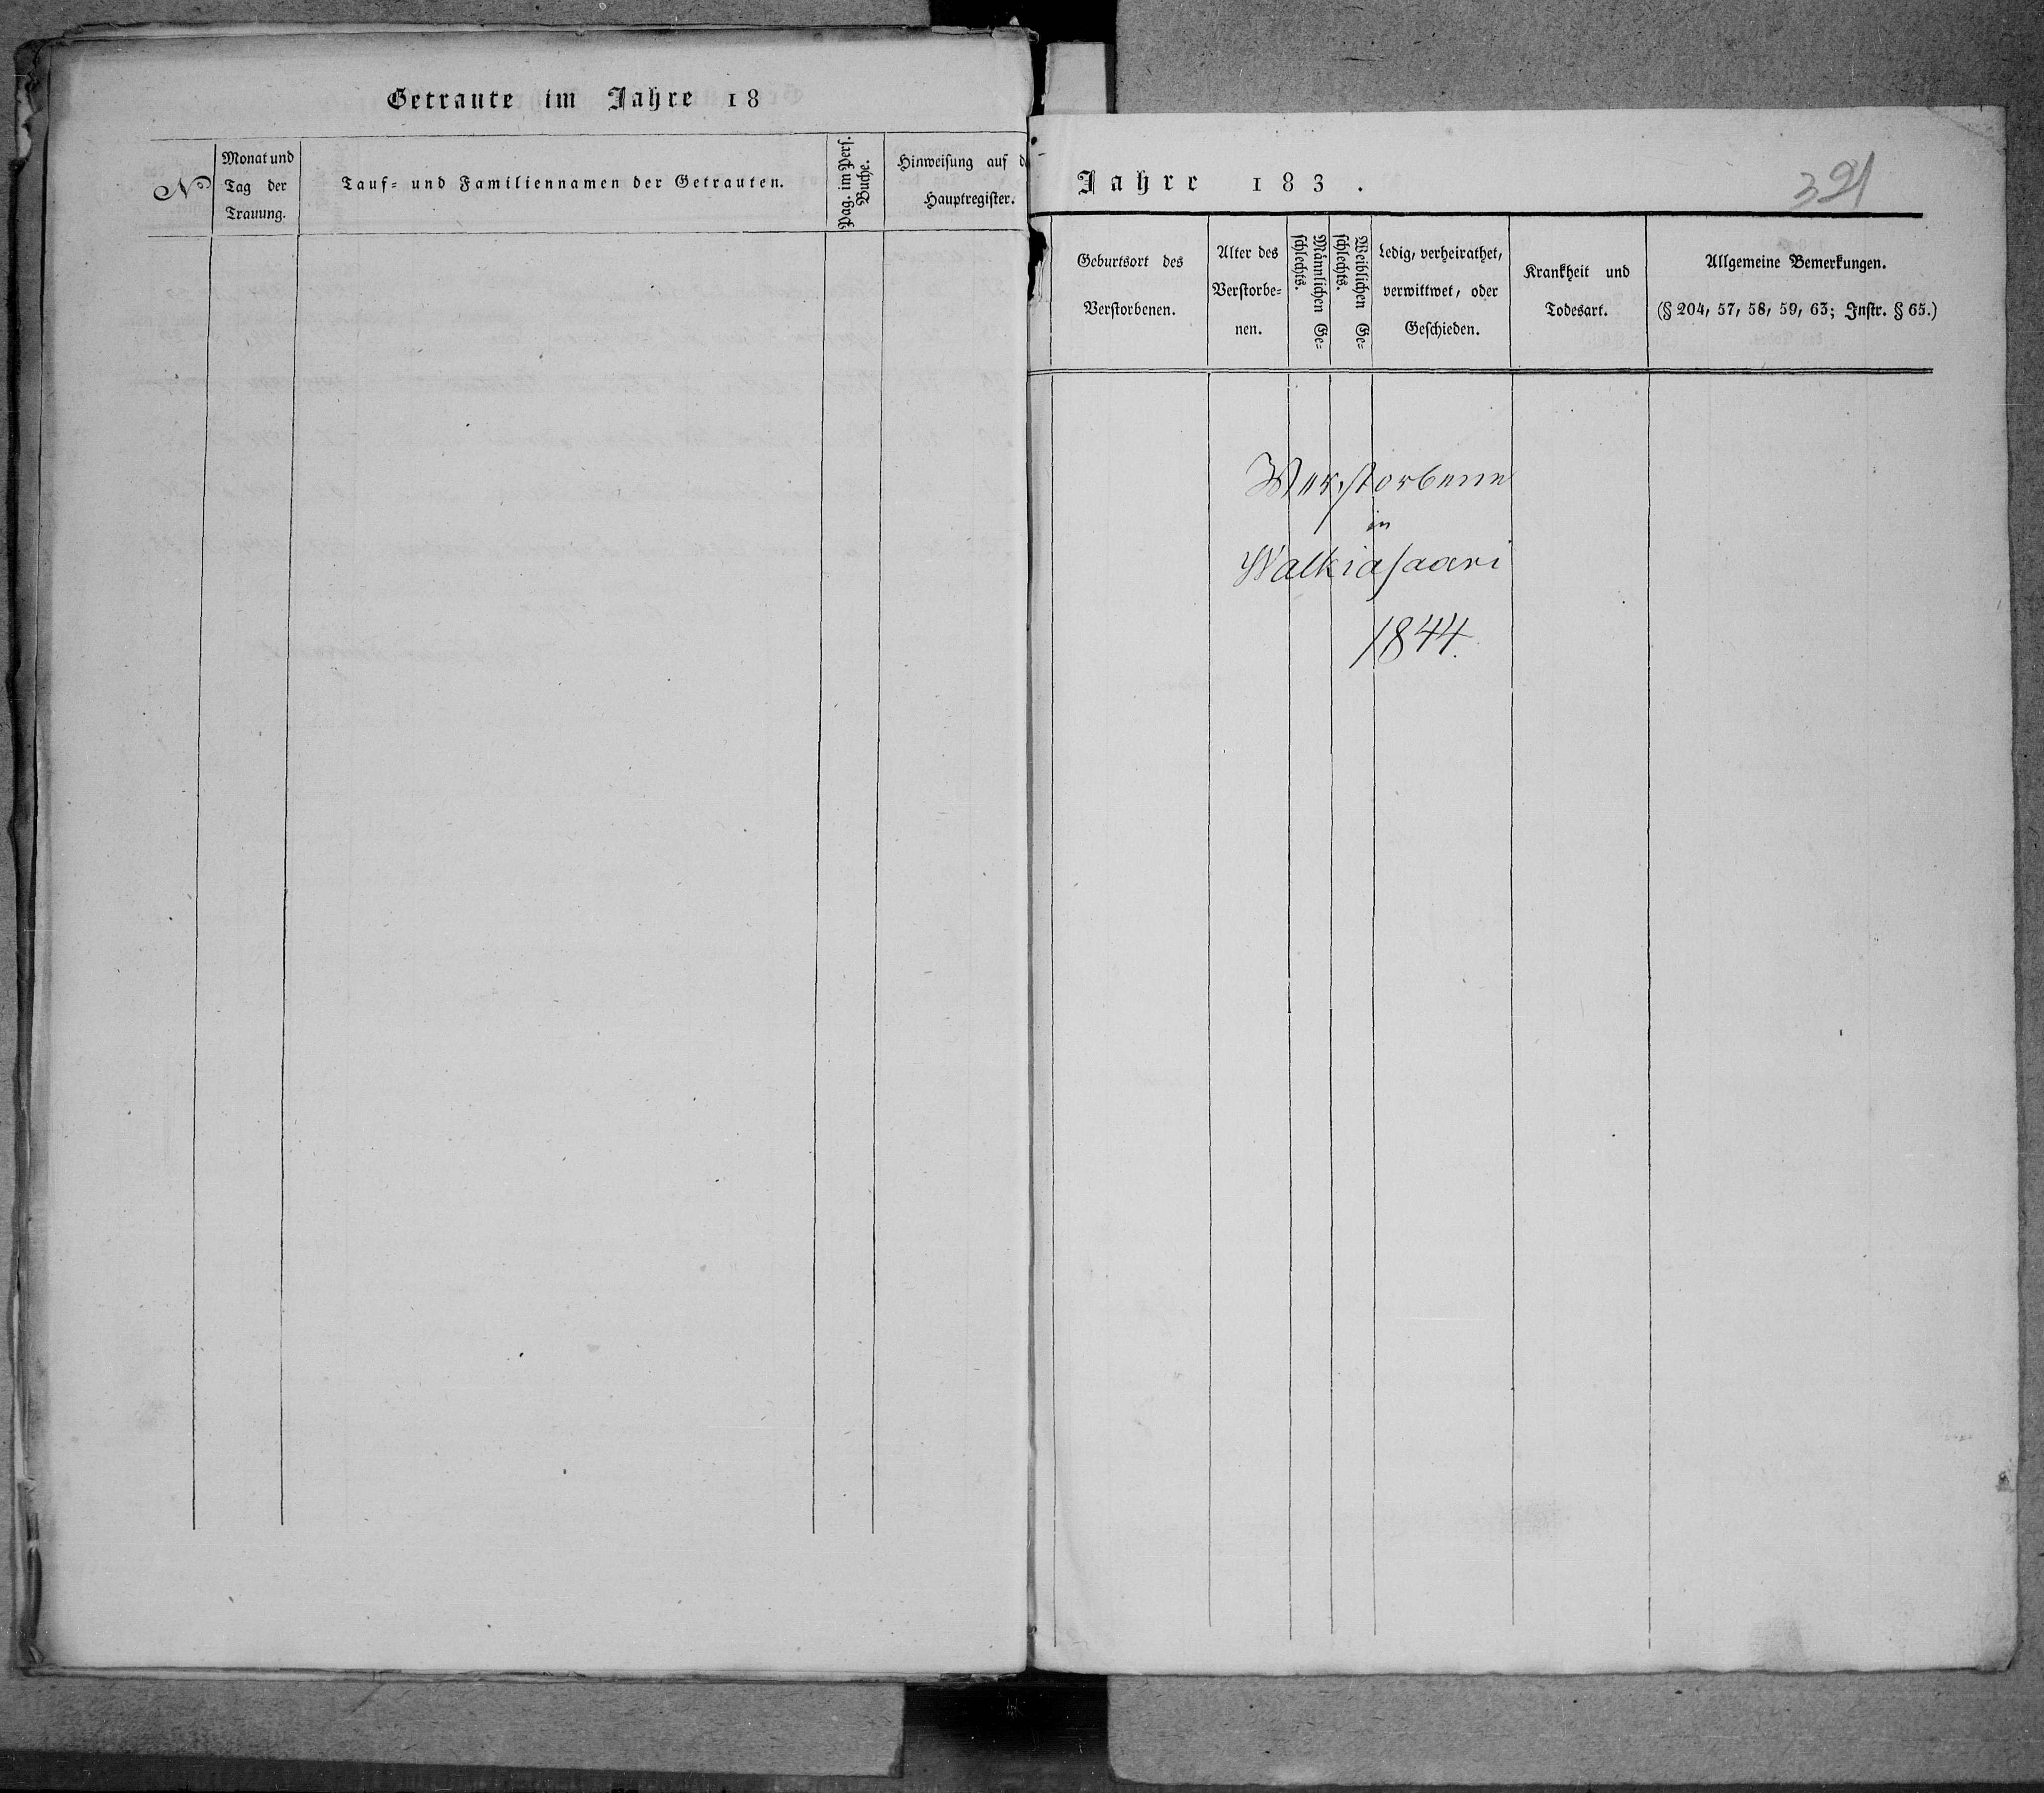 Getraute im Jahre 18
№
Monat und
Tag der
Trauung.
Tauf- und Familiennamen der Getrauten.
Pag. im Pers.
Buche.
Hinweisung auf d
Hauptregister.
Jahre 183 .
391
Geburtsort des
Verstorbenen.
Alter des
Verstorbe-
nen.
Männlichen Ge-
schlechts.
Weiblichen Ge-
schlechts.
Ledig, verheirathet,
verwittwet, oder
Geschieden.
Krankheit und
Todesart.
Allgemeine Bemerkungen.
(§ 204, 57, 58, 59, 63; Instr. § 65.)
Verstorbene
in
Walkiasaari
1844.